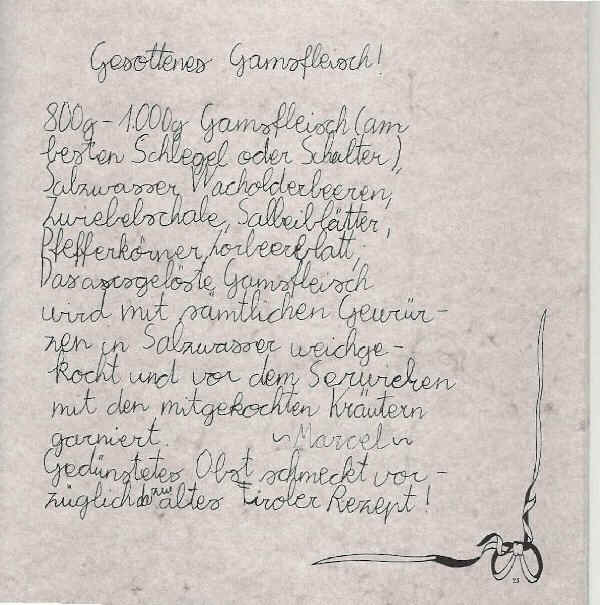 Gesottenes Gamsfleisch!
800g - 1.000g Gamsfleisch (am
besten Schlegel oder Schulter),
Salzwasser, Wacholderbeeren,
Zwiebelschale, Salbeiblätter,
Pfefferkörner, Lorbeerblatt,
Das ausgelöste Gamsfleisch
wird mit sämtlichen Gewür-
zen in Salzwasser weichge-
kocht und vor dem Servieren
mit den mitgekochten Kräutern
garniert. ~Marcel~
Gedünstetes Obst schmeckt vor-
züglich dazu altes Tiroler Rezept!
25